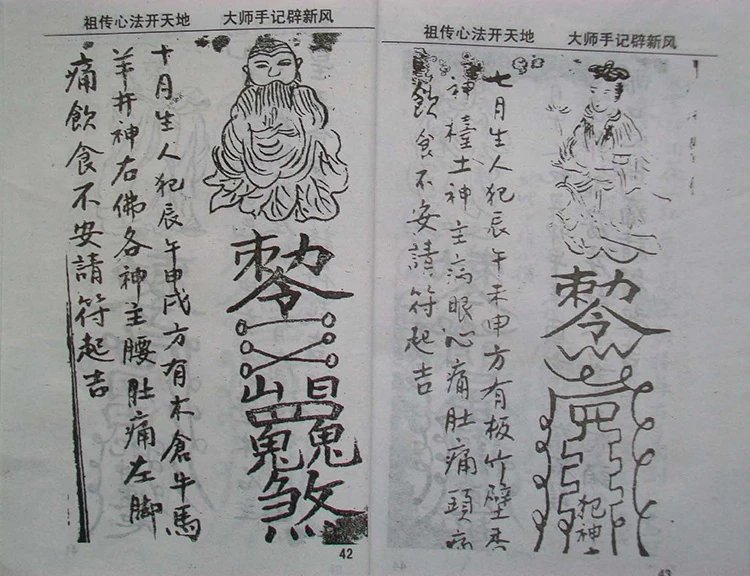 祖传心法开天地 大师手记辟新风
十月生人犯辰午申戌方有木倉牛馬
羊井神右佛各神主腰肚痛左脚
痛飲食不安請符起吉
敕令
山 日
鬼 鬼
煞
42
祖传心法开天地 大师手记辟新风
七月生人犯辰午未申方有板竹壁香
神檯土神主病眼沁痛肚痛頭痛
飲食不安請符起吉
敕令
犯神